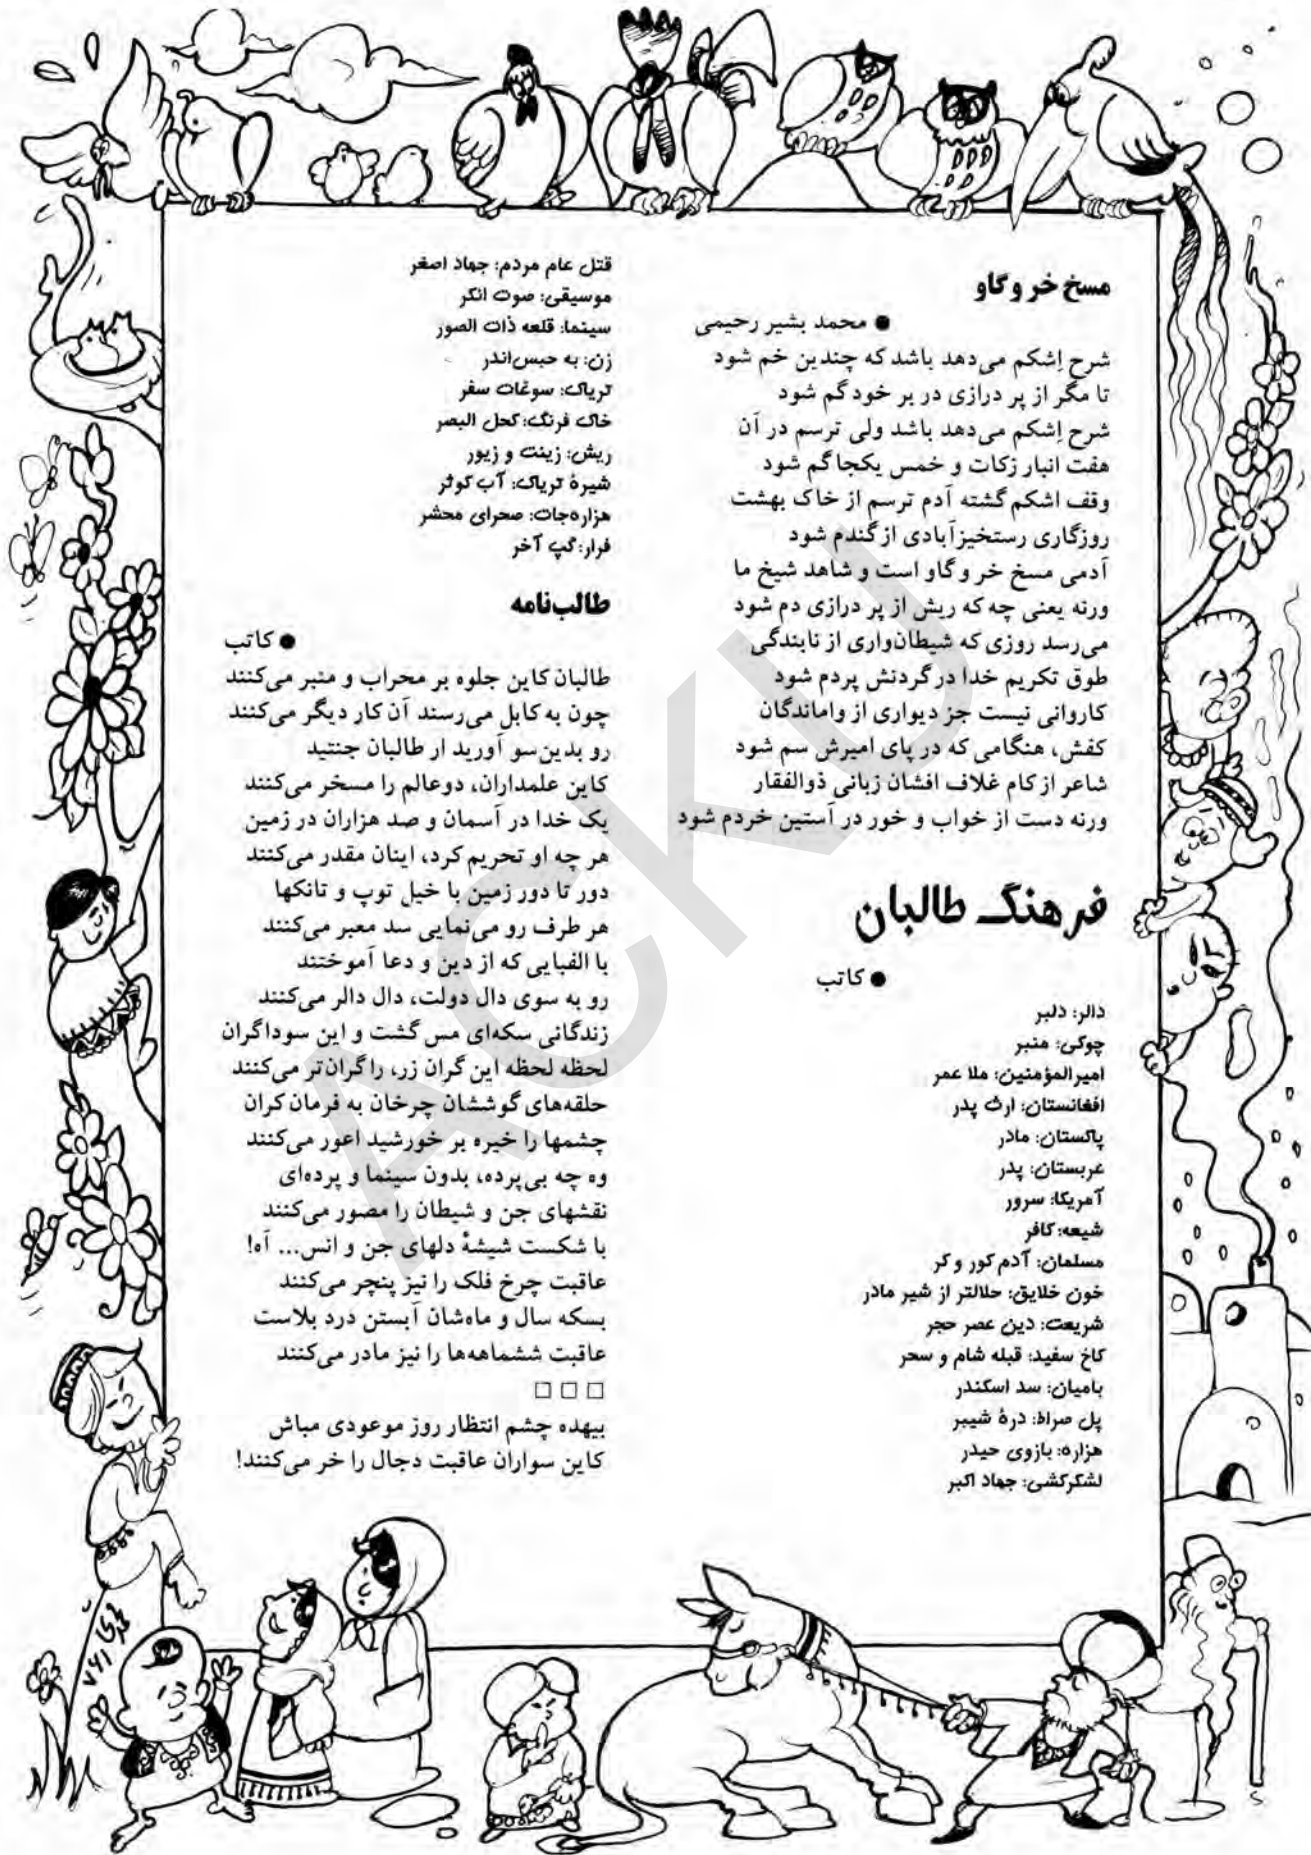 مسخ خر و گاو
● محمد بشیر رحیمی
شرح اِشکم می‌دهد باشد که چندین خم شود
تا مگر از پر درازی در بر خود گم شود
شرح اِشکم می‌دهد باشد ولی ترسم در آن
هفت انبار زکات و خمس یکجا گم شود
وقف اشکم گشته آدم ترسم از خاک بهشت
روزگاری رستخیزآبادی از گندم شود
آدمی مسخ خر و گاو است و شاهد شیخ ما
ورنه یعنی چه که ریش از پر درازی دم شود
می‌رسد روزی که شیطان‌واری از نابندگی
طوق تکریم خدا در گردنش پردم شود
کاروانی نیست جز دیواری از واماندگان
کفش، هنگامی که در پای امیرش سم شود
شاعر از کام غلاف افشان زبانی ذوالفقار
ورنه دست از خواب و خور در آستین خردم شود
فرهنگ طالبان
● کاتب
دالر: دلبر
چوکی: منبر
امیرالمؤمنین: ملا عمر
افغانستان: ارث پدر
پاکستان: مادر
عربستان: پدر
آمریکا: سرور
شیعه: کافر
مسلمان: آدم کور و کر
خون خلایق: حلالتر از شیر مادر
شریعت: دین عصر حجر
کاخ سفید: قبله شام و سحر
بامیان: سد اسکندر
پل صراط: درهٔ شیبر
هزاره: بازوی حیدر
لشکرکشی: جهاد اکبر
قتل عام مردم: جهاد اصغر
موسیقی: صوت انکر
سینما: قلعه ذات الصور
زن: به حبس‌اندر
تریاک: سوغات سفر
خاک فرنگ: کحل البصر
ریش: زینت و زیور
شیرهٔ تریاک: آب کوثر
هزاره‌جات: صحرای محشر
فرار: گپ آخر
طالب‌نامه
● کاتب
طالبان کاین جلوه بر محراب و منبر می‌کنند
چون به کابل می‌رسند آن کار دیگر می‌کنند
رو بدین‌سو آورید ار طالبان جنتید
کاین علمداران، دوعالم را مسخر می‌کنند
یک خدا در آسمان و صد هزاران در زمین
هر چه او تحریم کرد، اینان مقدر می‌کنند
دور تا دور زمین با خیل توپ و تانکها
هر طرف رو می‌نمایی سد معبر می‌کنند
با الفبایی که از دین و دعا آموختند
رو به سوی دال دولت، دال دالر می‌کنند
زندگانی سکه‌ای مس گشت و این سوداگران
لحظه لحظه این گران زر، را گران‌تر می‌کنند
حلقه‌های گوششان چرخان به فرمان کران
چشمها را خیره بر خورشید اعور می‌کنند
وه چه بی‌پرده، بدون سینما و پرده‌ای
نقشهای جن و شیطان را مصور می‌کنند
با شکست شیشهٔ دلهای جن و انس... آه!
عاقبت چرخ فلک را نیز پنچر می‌کنند
بسکه سال و ماه‌شان آبستن درد بلاست
عاقبت ششماهه‌ها را نیز مادر می‌کنند
□ □ □
بیهده چشم انتظار روز موعودی مباش
کاین سواران عاقبت دجال را خر می‌کنند!
ACKU